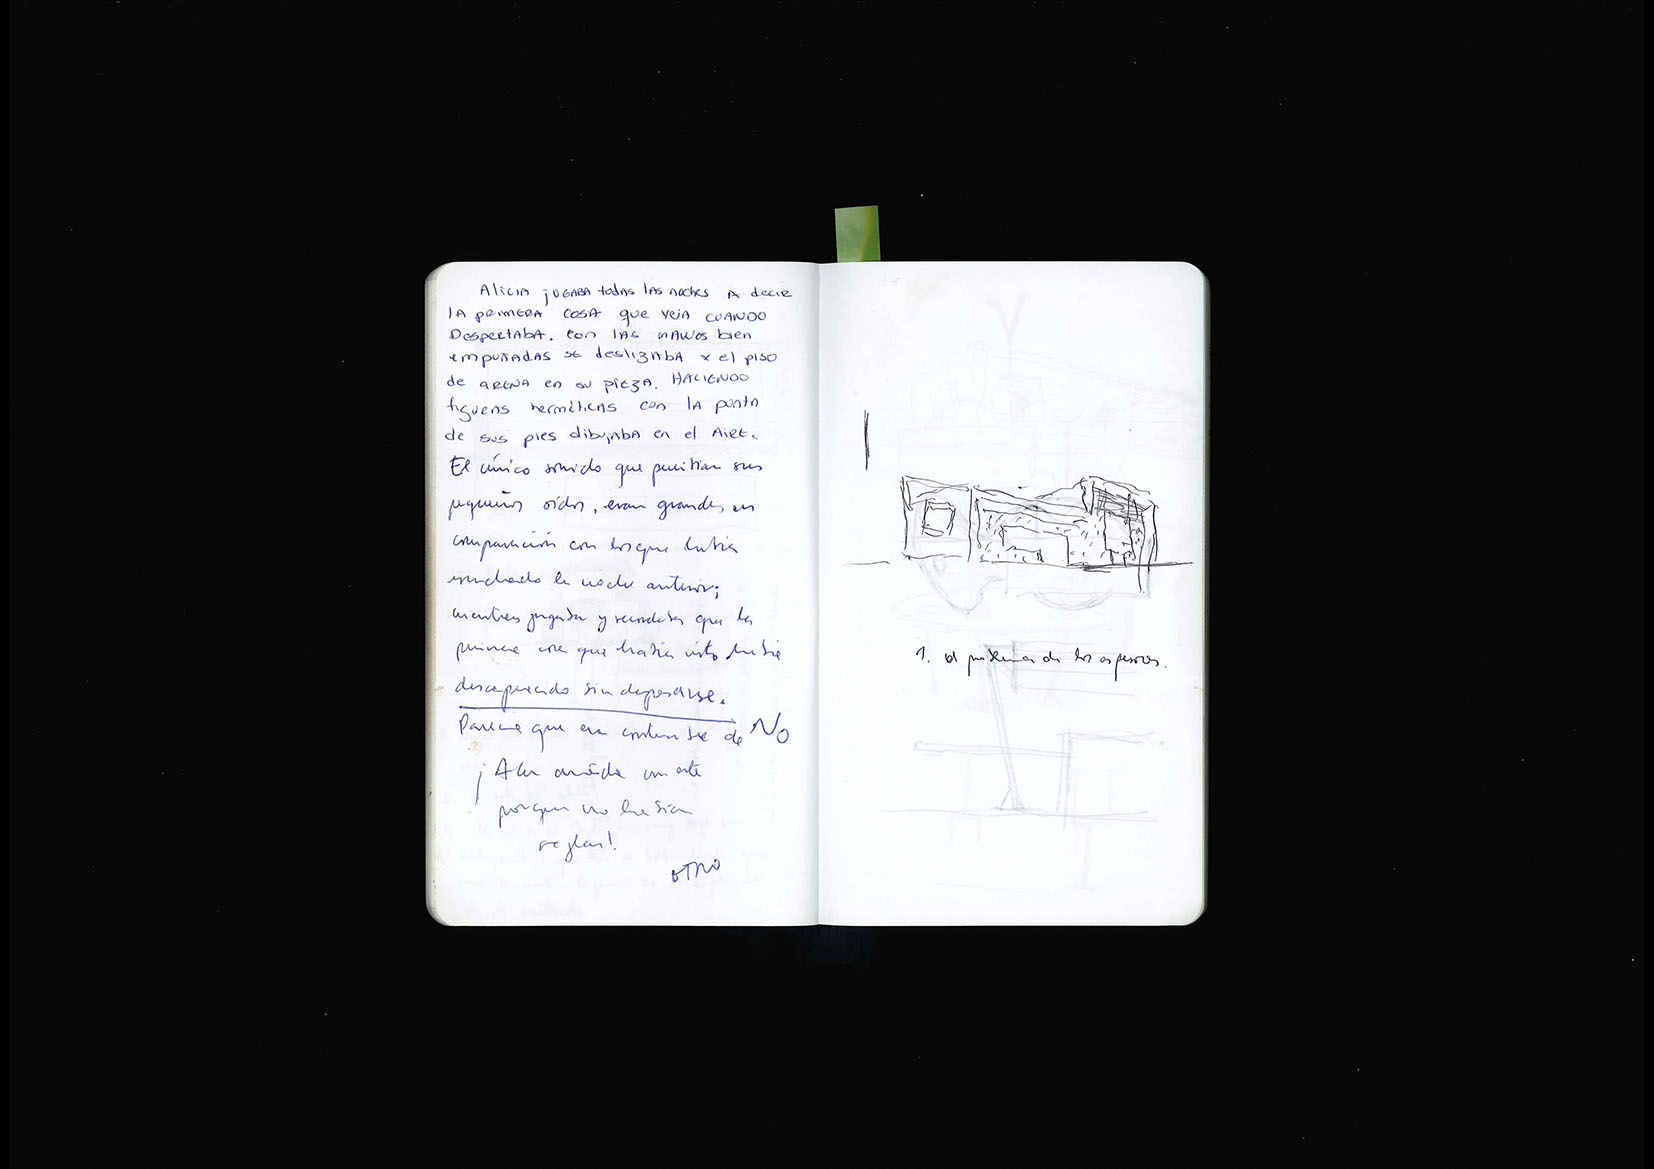 Alicia jugaba todas las noches a decir
la primera cosa que veia cuando
despertaba. Con las manos bien
empuñadas se deslizaba x el piso
de arena en su pieza. Haciendo
figuras herméticas con la punta
de sus pies dibujaba en el aire.
El único sonido que sus
pequeños oídos, eran grandes en
comparación con los que había
escuchado la noche anterior;
mientras jugaba y recordaba que la
primera cosa que había visto había
desaparecido sin despedirse.
Parece que era de NO
¡A la con este
porque no habían
reglas!
OTRO
1. el problema de los espesores.